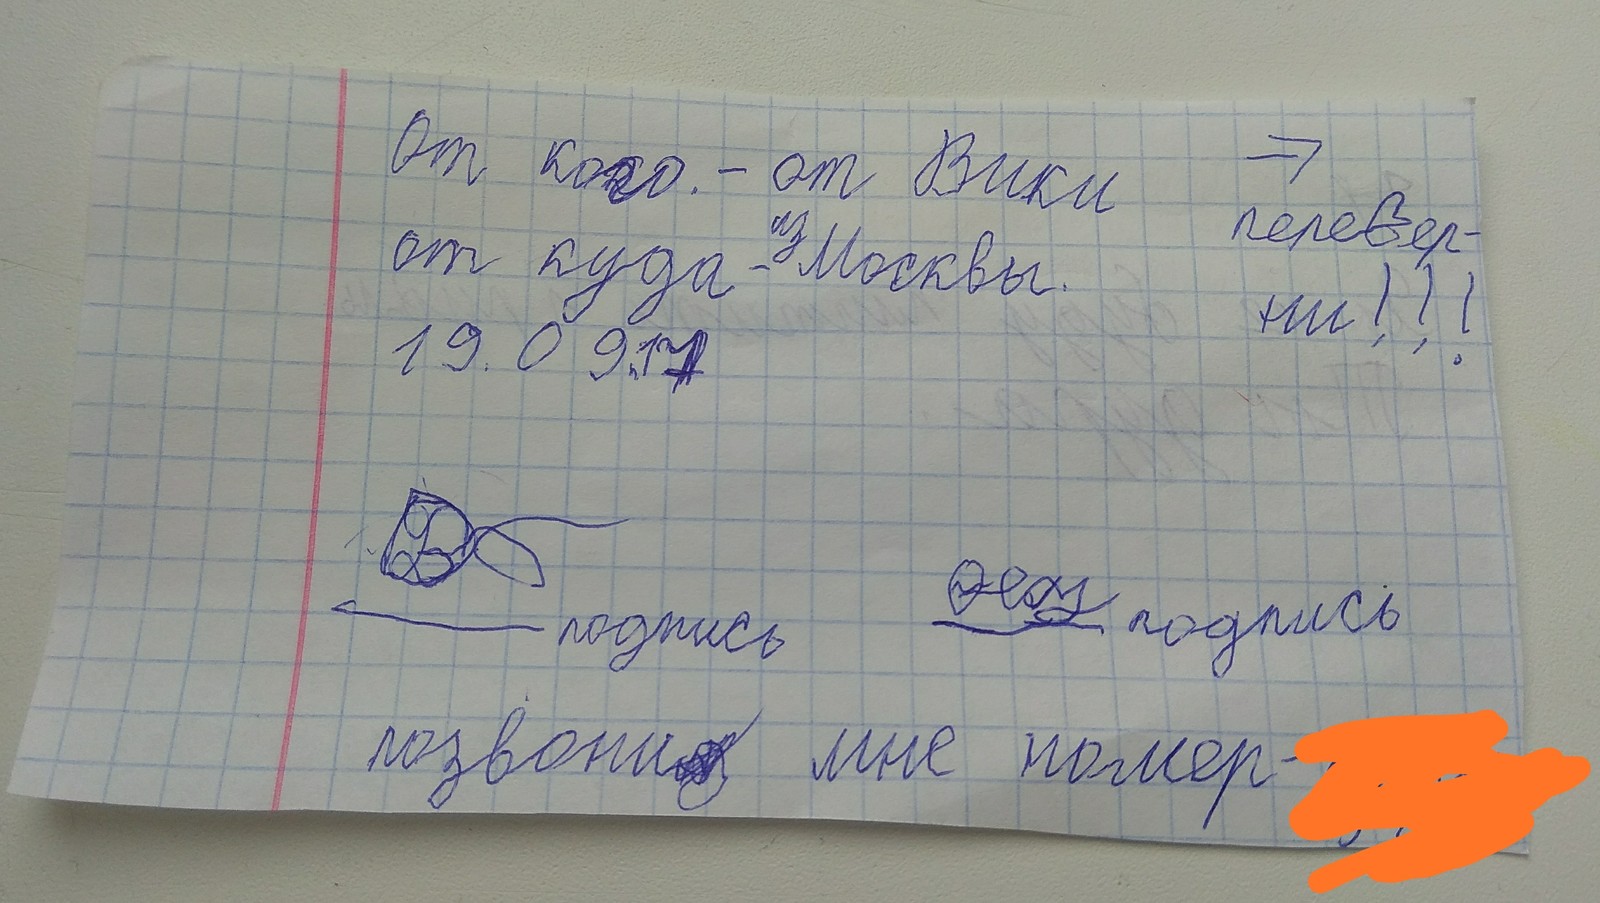 От кого. - от Вики
от куда - из Москвы.
19.09.17
⇒
перевер-
ни!!!
подпись
подпись
позвони мне номер-